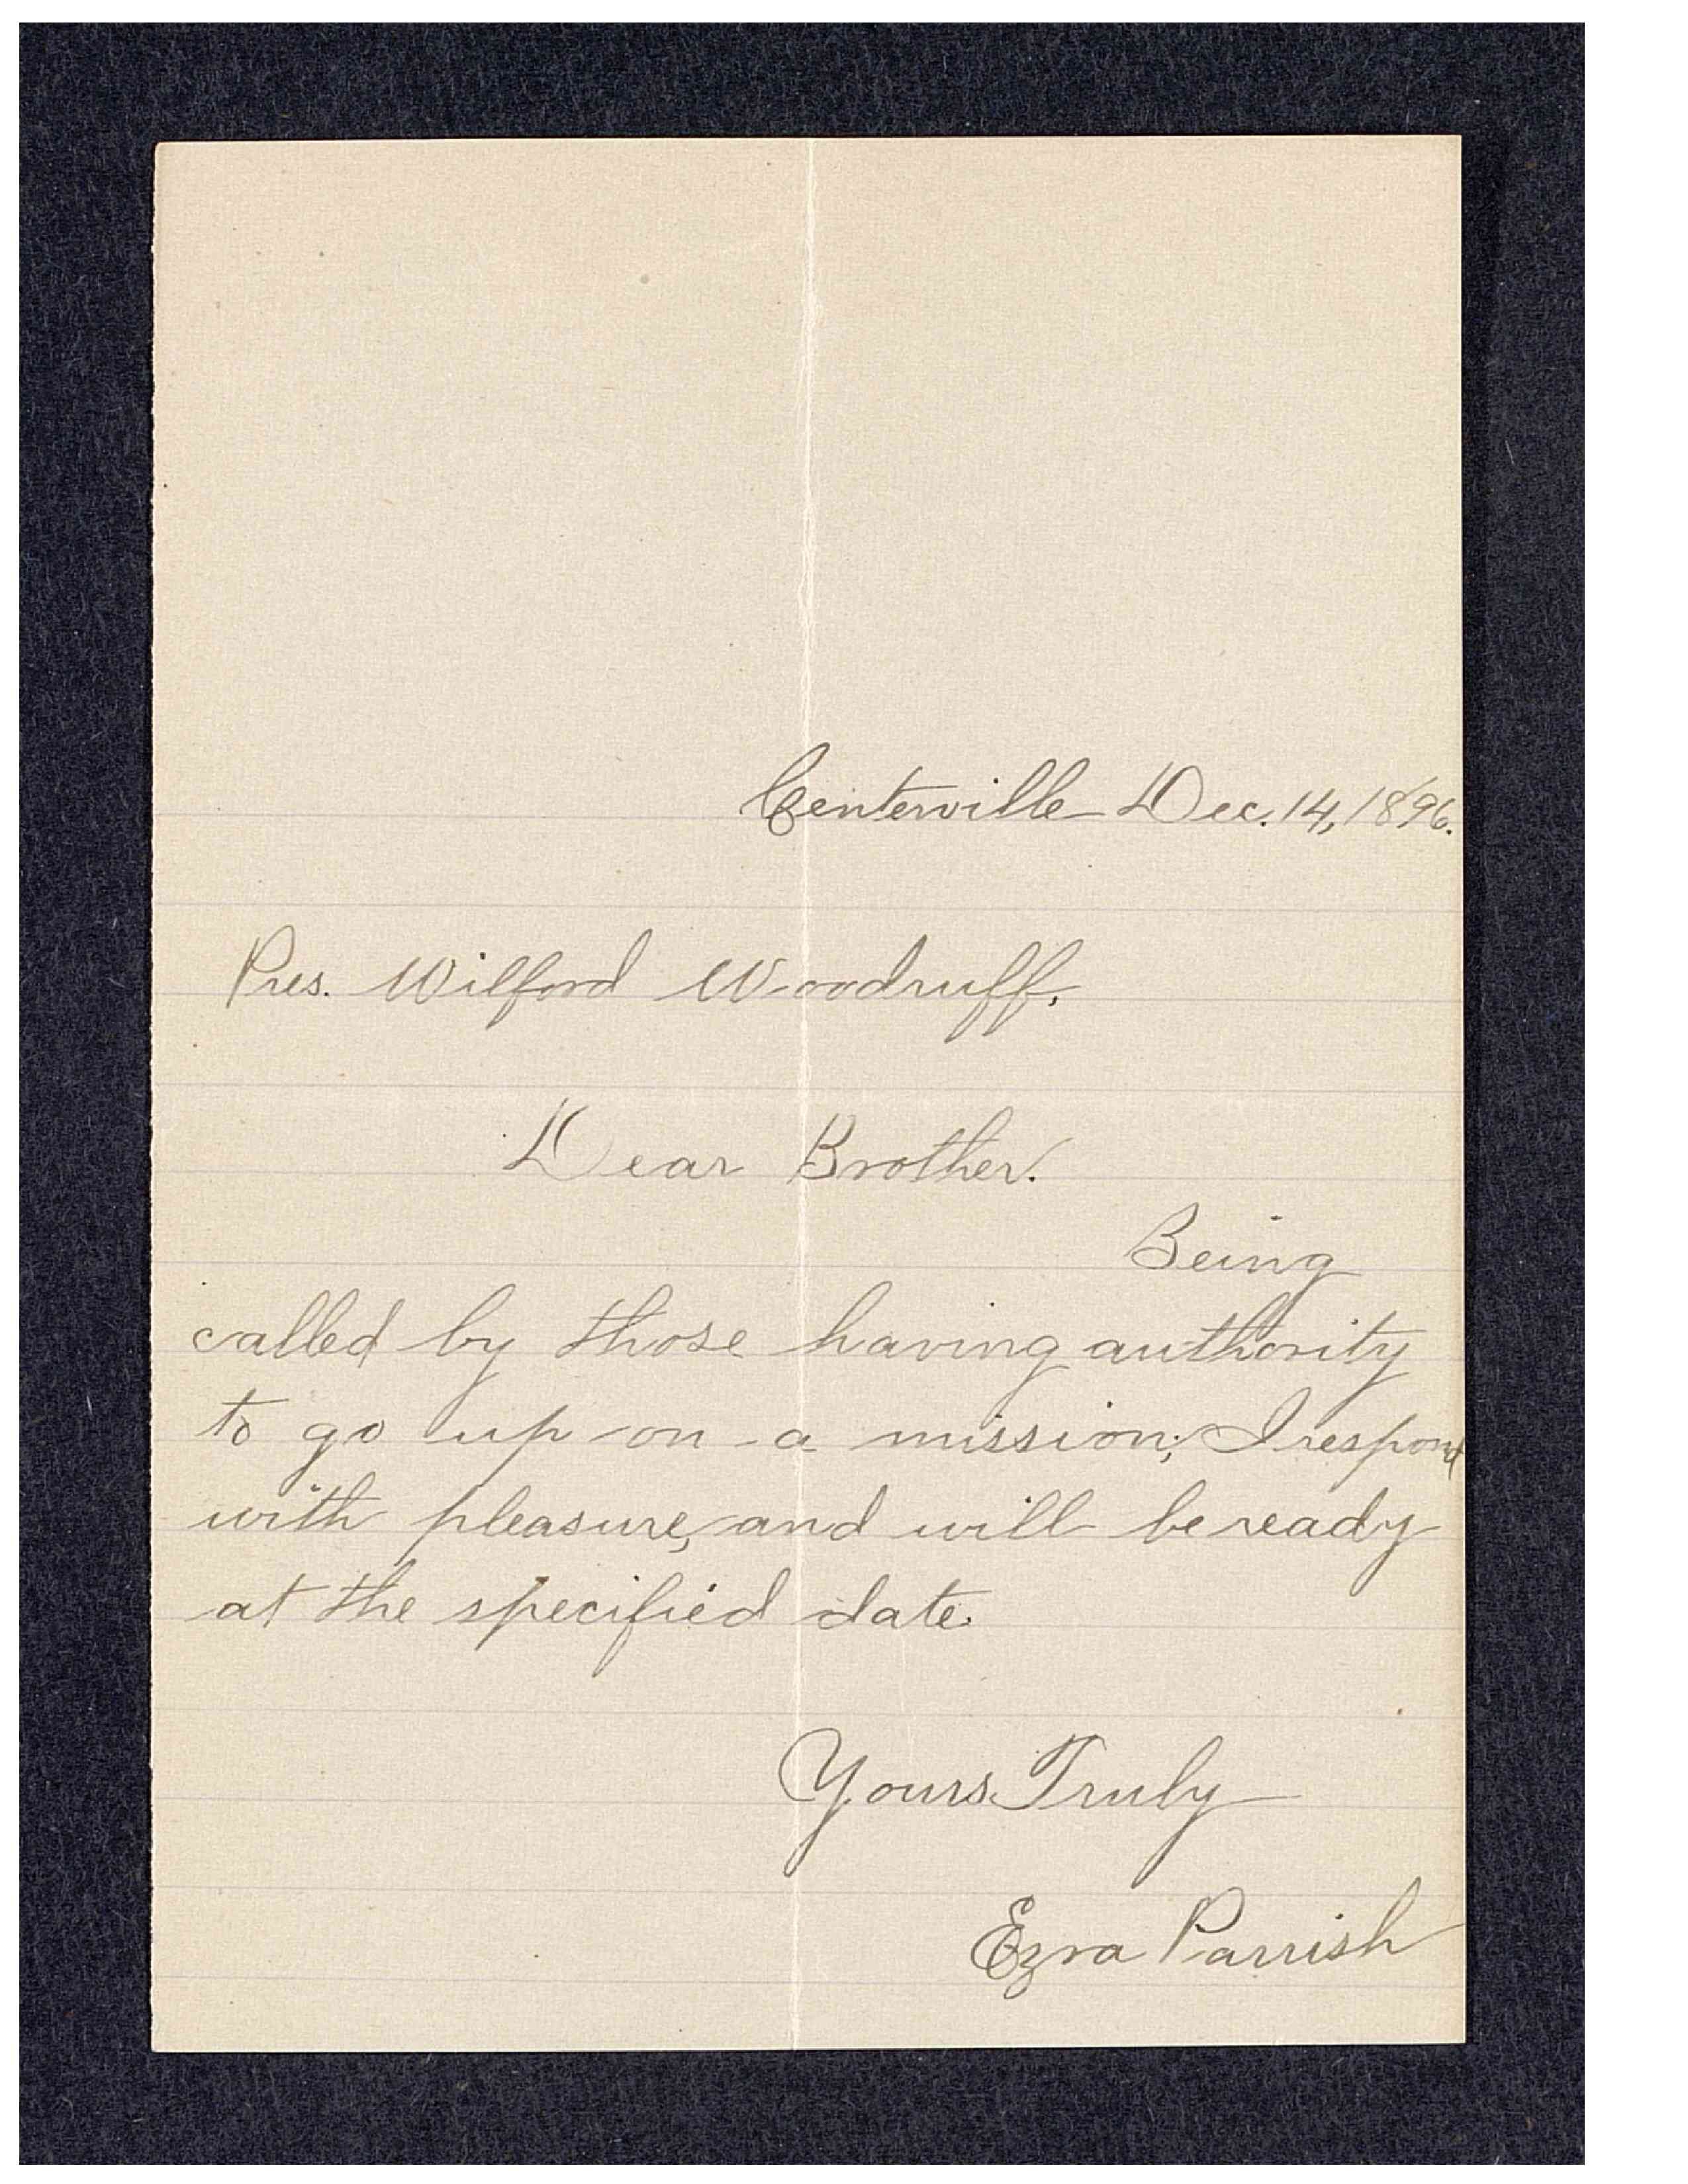 Centerville Dec. 14, 1896.
Pres. Wilford Woodruff.
Dear Brother.
Being
called by those having authority
to go up on a mission; I respond
with pleasure, and will be ready
at the specified date.
Yours Truly
Ezra Parrish